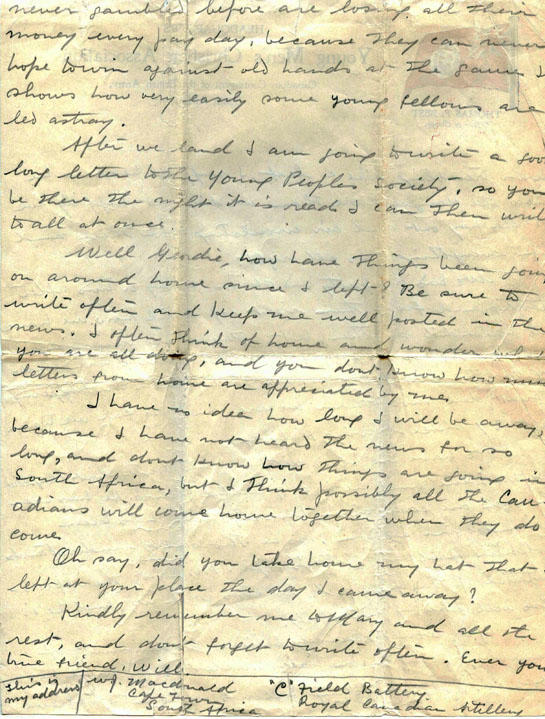 never gambled before are losing all their
money every pay day, because they can never
hope to win against old hands at the games I
shows how very easily some young fellows are
led astray.
After we land I am going to write a goo
long letter to the Young Peoples Society, so you
be there the night it is read I can then writ
to all at once.
Well Geordie, how have things been goin
on around home since I left? Be sure to
write often and keep me well posted in the
news. I often think of home and wonder
you are all doing, and you dont know how mu
letters from home are appreciated by me.
I have no idea how long I will be away,
because I have not heard the news for so
long, and dont know how things are going in
South Africa, but I think possibly all the Can-
adians will come home together when they do
come.
Oh say, did you take home my hat that
left at your place the day I came away?
Kindly remember me to Mary and all the
rest, and don't forget to write often. Ever you
true friend, Will.
this is
my address
W.J. Macdonald
Cape Town
South Africa
"C" Field Battery
Royal Canadian Artillery